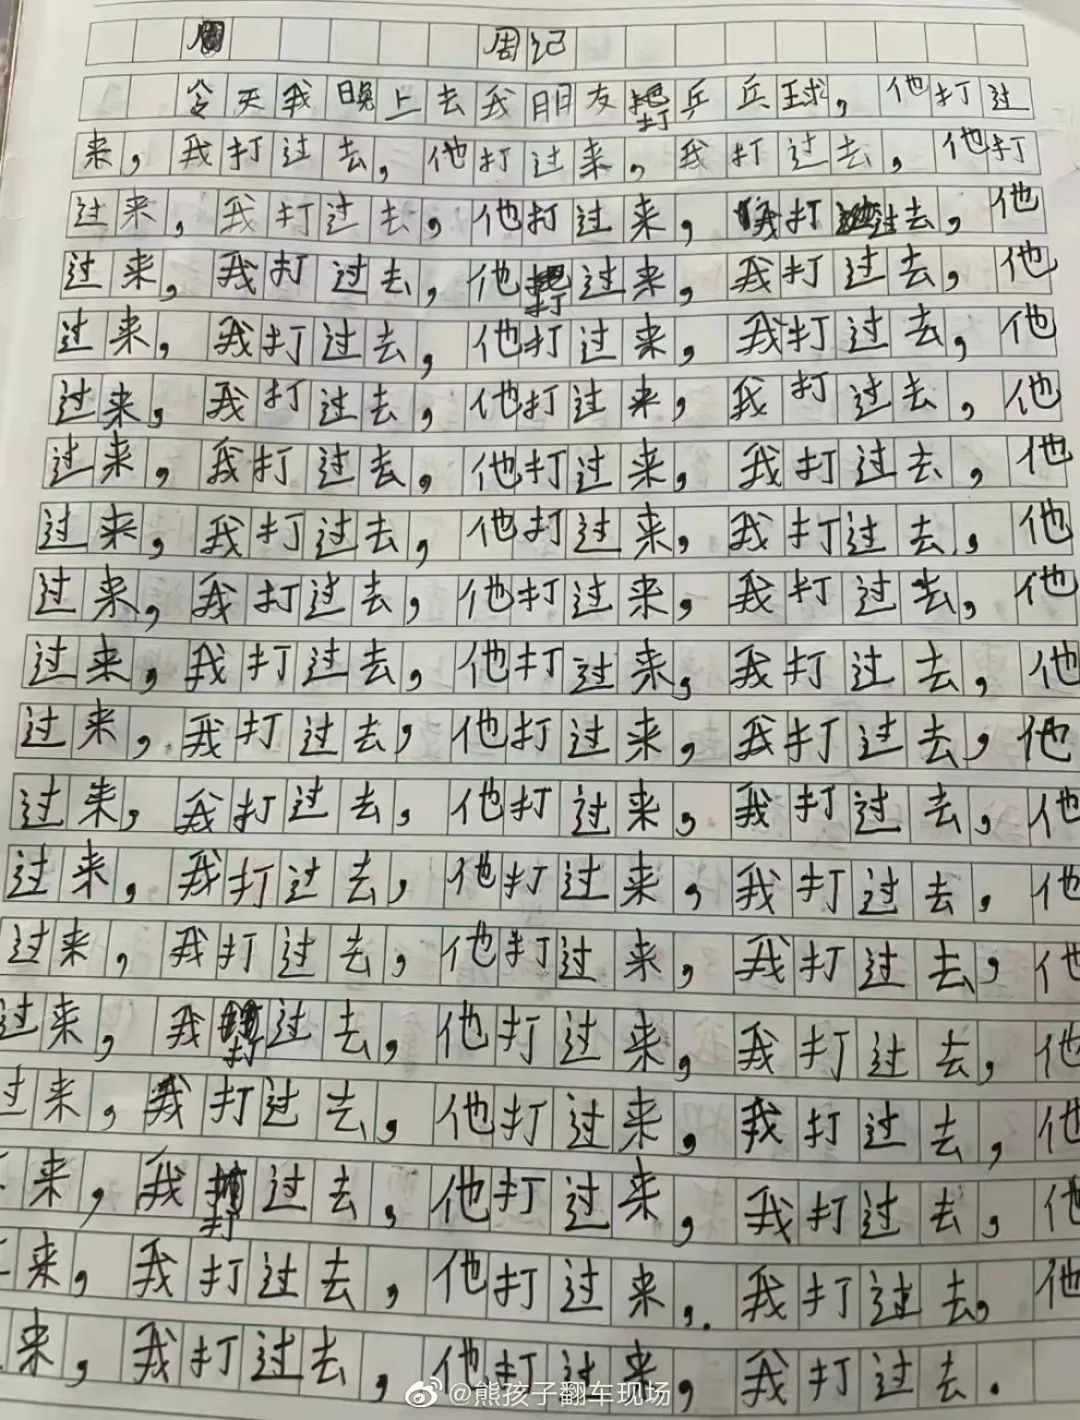 周记
今天我晚上去我朋友打乒乓球，他打过
来，我打过去，他打过来，我打过去，他打
过来，我打过去，他打过来，我打过去，他
过来，我打过去，他打过来，我打过去，他
过来，我打过去，他打过来，我打过去，他
过来，我打过去，他打过来，我打过去，他
过来，我打过去，他打过来，我打过去，他
过来，我打过去，他打过来，我打过去，他
过来，我打过去，他打过来，我打过去，他
过来，我打过去，他打过来，我打过去，他
过来，我打过去，他打过来，我打过去，他
过来，我打过去，他打过来，我打过去，他
过来，我打过去，他打过来，我打过去，他
过来，我打过去，他打过来，我打过去，他
过来，我打过去，他打过来，我打过去，他
过来，我打过去，他打过来，我打过去，他
来，我打过去，他打过来，我打过去，他
来，我打过去，他打过来，我打过去，他
来，我打过去，他打过来，我打过去．
@熊孩子翻车现场